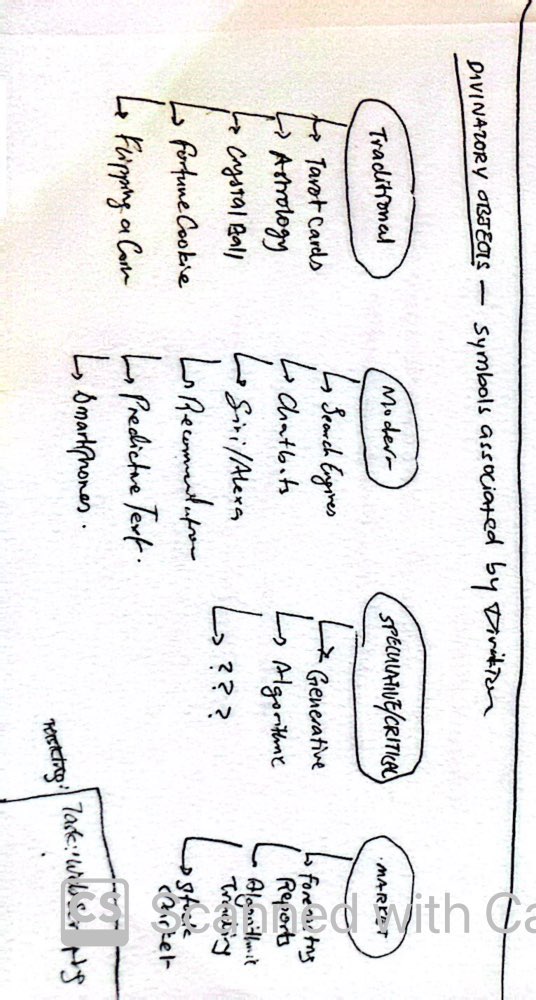 DIVINATORY OBJECTS — symbols associated by Divition
Traditional
Tarot Cards
Astrology
Crystal Ball
Fortune Cookie
Flipping a Coin
Modern
Search Engines
Chatbots
Siri/Alexa
Recommendation
Predictive Text.
Smartphones.
SPECULATIVE/CRITICAL
Generative
Algorithmic
? ? ?
MARKET
Forecasting
Reports
Algorithmic
Trading
Stock
Market
Task: Web Scripting
CS Scanned with Ca